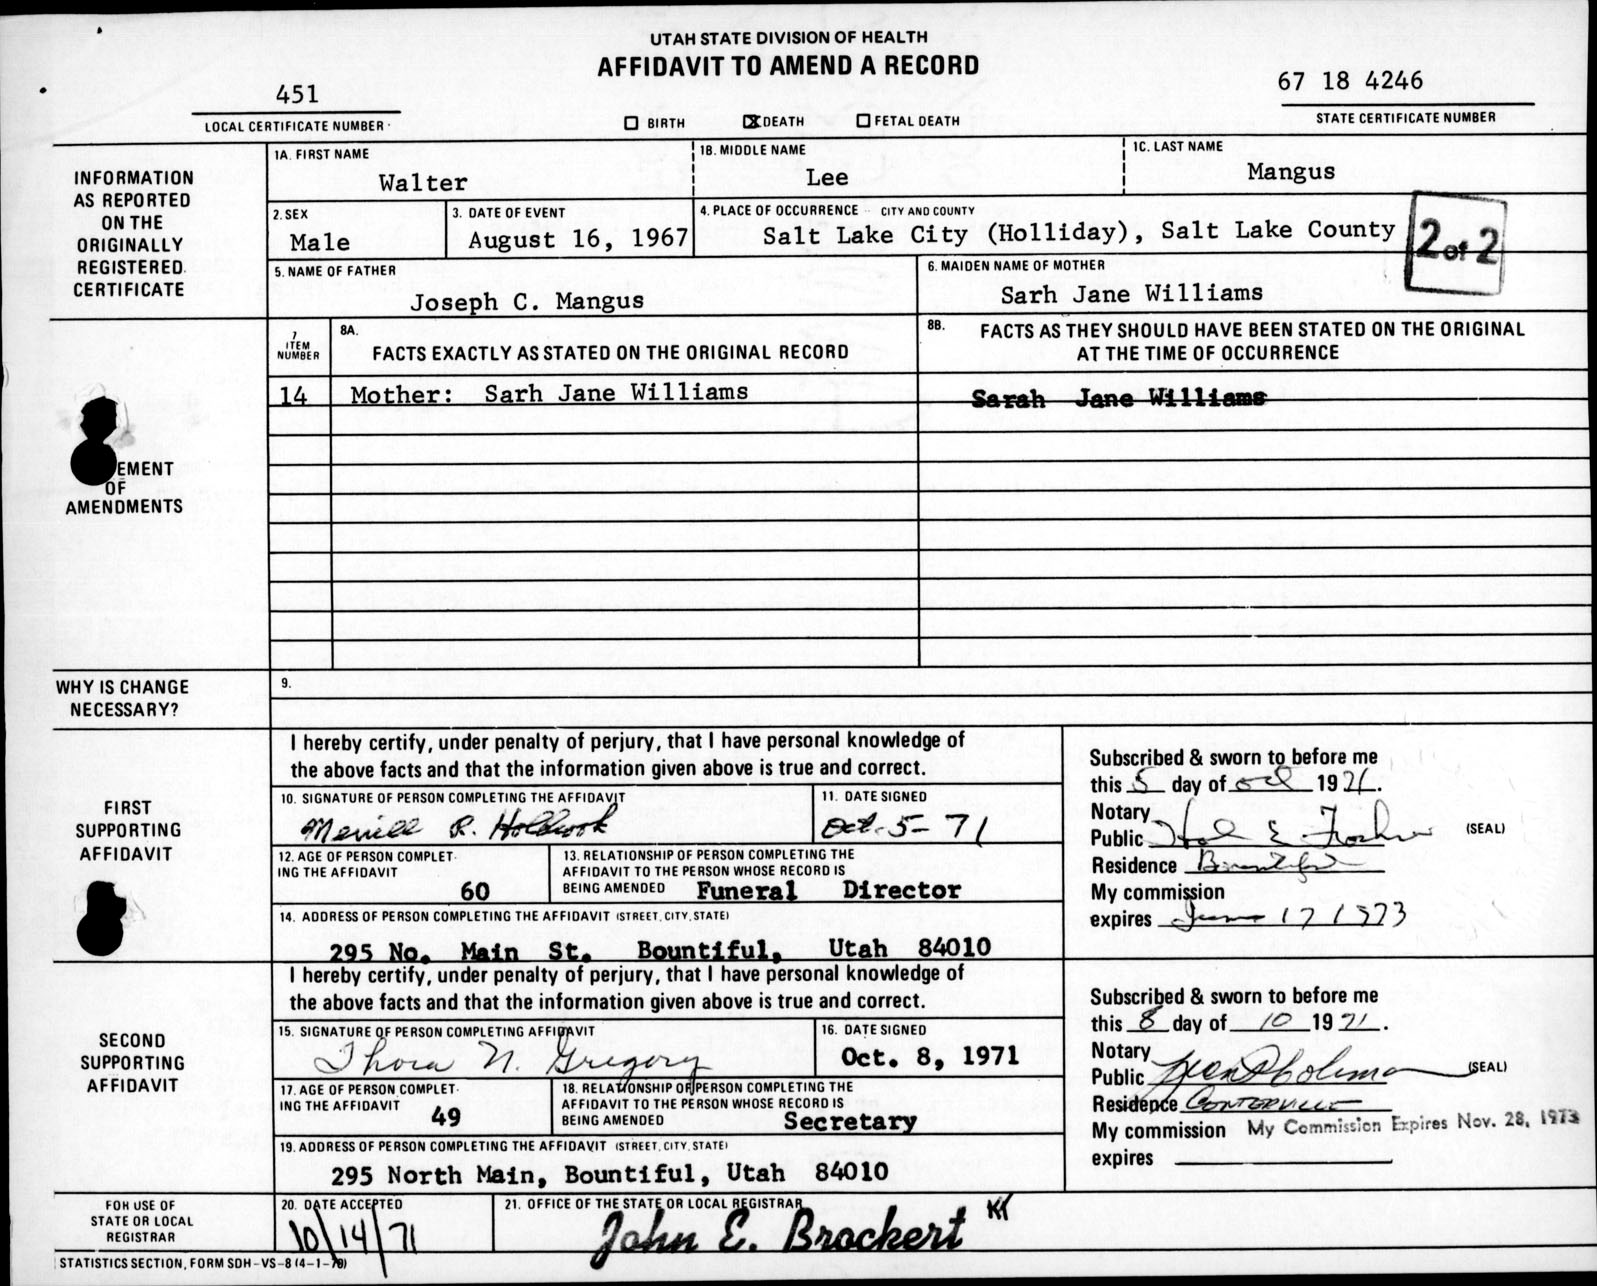 UTAH STATE DIVISION OF HEALTH
AFFIDAVIT TO AMEND A RECORD
451
LOCAL CERTIFICATE NUMBER
BIRTH DEATH FETAL DEATH
67 18 4246
STATE CERTIFICATE NUMBER
INFORMATION
AS REPORTED
ON THE
ORIGINALLY
REGISTERED
CERTIFICATE
1A. FIRST NAME
Walter
1B. MIDDLE NAME
Lee
1C. LAST NAME
Mangus
2. SEX
Male
3. DATE OF EVENT
August 16, 1967
4. PLACE OF OCCURRENCE CITY AND COUNTY
Salt Lake City (Holliday), Salt Lake County
2 of 2
5. NAME OF FATHER
Joseph C. Mangus
6. MAIDEN NAME OF MOTHER
Sarh Jane Williams
EMENT
OF
AMENDMENTS
7
ITEM
NUMBER
8A.
FACTS EXACTLY AS STATED ON THE ORIGINAL RECORD
8B. FACTS AS THEY SHOULD HAVE BEEN STATED ON THE ORIGINAL
AT THE TIME OF OCCURRENCE
14 Mother: Sarh Jane Williams
Sarah Jane Williams
WHY IS CHANGE
NECESSARY?
9.
FIRST
SUPPORTING
AFFIDAVIT
I hereby certify, under penalty of perjury, that I have personal knowledge of
the above facts and that the information given above is true and correct.
10. SIGNATURE OF PERSON COMPLETING THE AFFIDAVIT
Merrill R. Holbrook
11. DATE SIGNED
Oct. 5- 71
12. AGE OF PERSON COMPLET-
ING THE AFFIDAVIT
60
13. RELATIONSHIP OF PERSON COMPLETING THE
AFFIDAVIT TO THE PERSON WHOSE RECORD IS
BEING AMENDED Funeral Director
14. ADDRESS OF PERSON COMPLETING THE AFFIDAVIT (STREET, CITY, STATE)
295 No. Main St. Bountiful, Utah 84010
Subscribed & sworn to before me
this 5 day of Oct 1971.
Notary
Public (SEAL)
Residence Bountiful
My commission
expires June 17 1973
SECOND
SUPPORTING
AFFIDAVIT
I hereby certify, under penalty of perjury, that I have personal knowledge of
the above facts and that the information given above is true and correct.
15. SIGNATURE OF PERSON COMPLETING AFFIDAVIT
Thora N. Gregory
16. DATE SIGNED
Oct. 8, 1971
17. AGE OF PERSON COMPLET-
ING THE AFFIDAVIT
49
18. RELATIONSHIP OF PERSON COMPLETING THE
AFFIDAVIT TO THE PERSON WHOSE RECORD IS
BEING AMENDED Secretary
19. ADDRESS OF PERSON COMPLETING THE AFFIDAVIT (STREET, CITY, STATE)
295 North Main, Bountiful, Utah 84010
Subscribed & sworn to before me
this 8 day of 10 1971.
Notary
Public (SEAL)
Residence Centerville
My commission My Commission Expires Nov. 28, 1973
expires
FOR USE OF
STATE OR LOCAL
REGISTRAR
20. DATE ACCEPTED
10/14/71
21. OFFICE OF THE STATE OR LOCAL REGISTRAR
John E. Brockert
STATISTICS SECTION, FORM SDH-VS-8 (4-1-70)